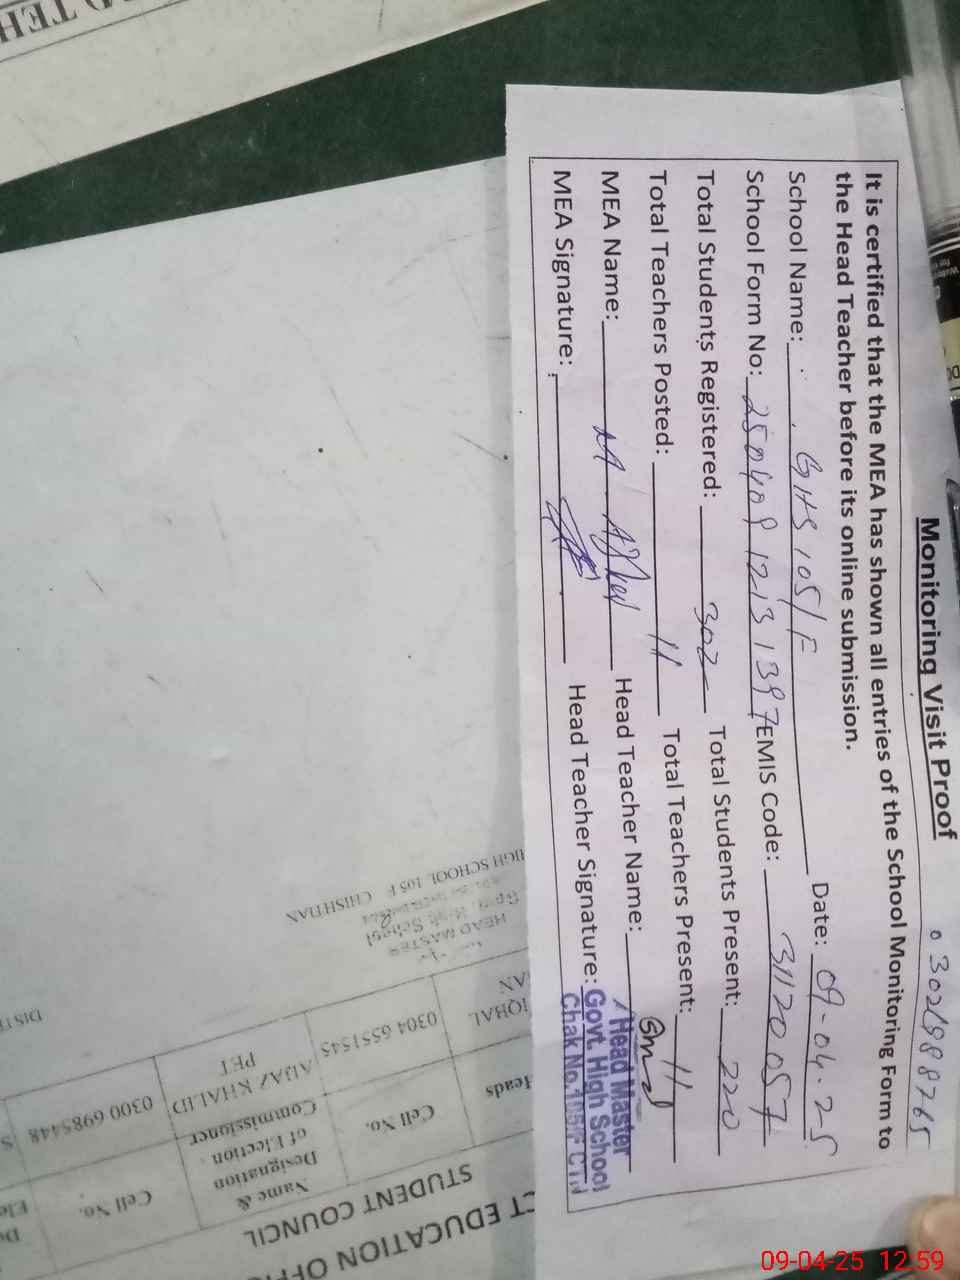 Monitoring Visit Proof
03021988765
It is certified that the MEA has shown all entries of the School Monitoring Form to
the Head Teacher before its online submission.
School Name: GHS 105/F Date: 09-04-25
School Form No: 25040912131397 EMIS Code: 31120057
Total Students Registered: 302 Total Students Present: 220
Total Teachers Posted: 11 Total Teachers Present: 11
MEA Name: Head Teacher Name:
MEA Signature: Head Teacher Signature:
Head Master
Govt. High School
Chak No.105/F CTN
STUDENT COUNCIL
Name &
Designation
of Election
Commissioner
Cell No.
Cell No.
AIJAZ KHALID
PET
0300 6985448
0304 6551545
IQBAL
HEAD MASTER
HIGH SCHOOL 105 F CHISHTIAN
09-04-25 12:59